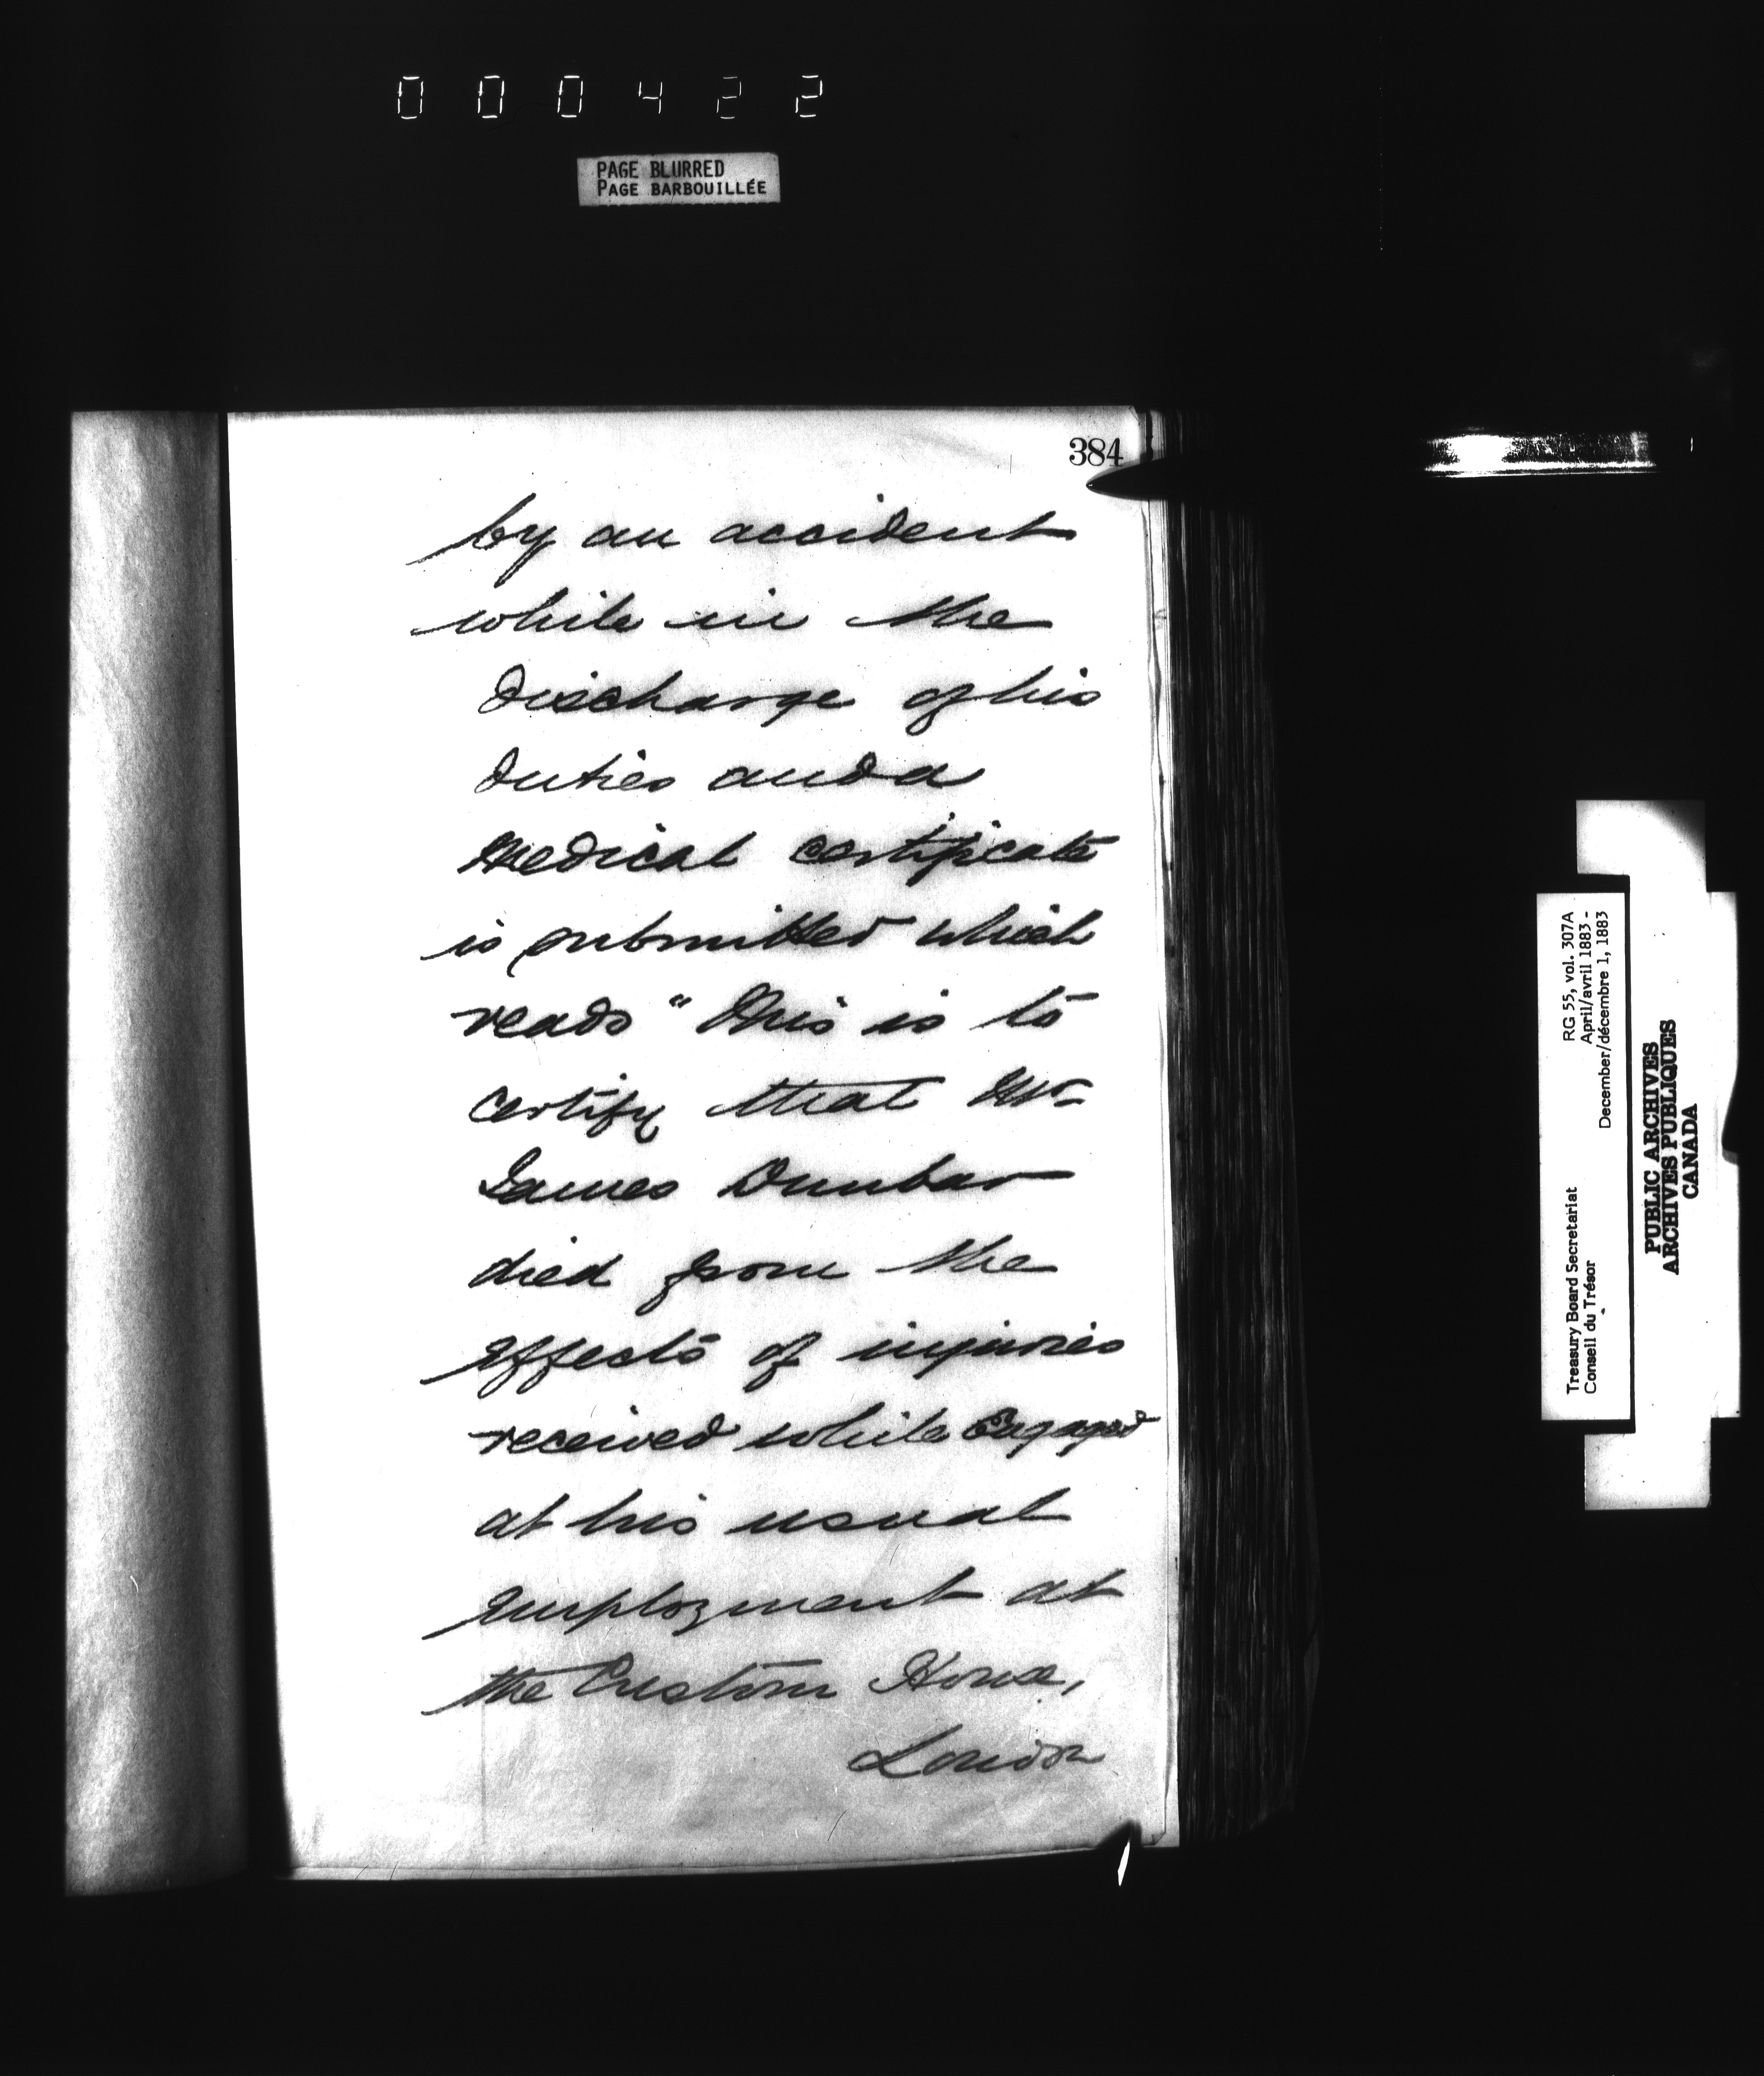 000422
PAGE BLURRED
PAGE BARBOUILLÉE
384
by an accident
while in the
discharge of his
duties and a
Medical certificate
is submitted which
reads "This is to
certify that Mr
James Dunbar
died from the
effects of injuries
received while Engaged
at his usual
employment at
the Custom House,
London
RG 55, vol. 307A
April/avril 1883 -
December/décembre 1, 1883
Treasury Board Secretariat
Conseil du Trésor
PUBLIC ARCHIVES
ARCHIVES PUBLIQUES
CANADA